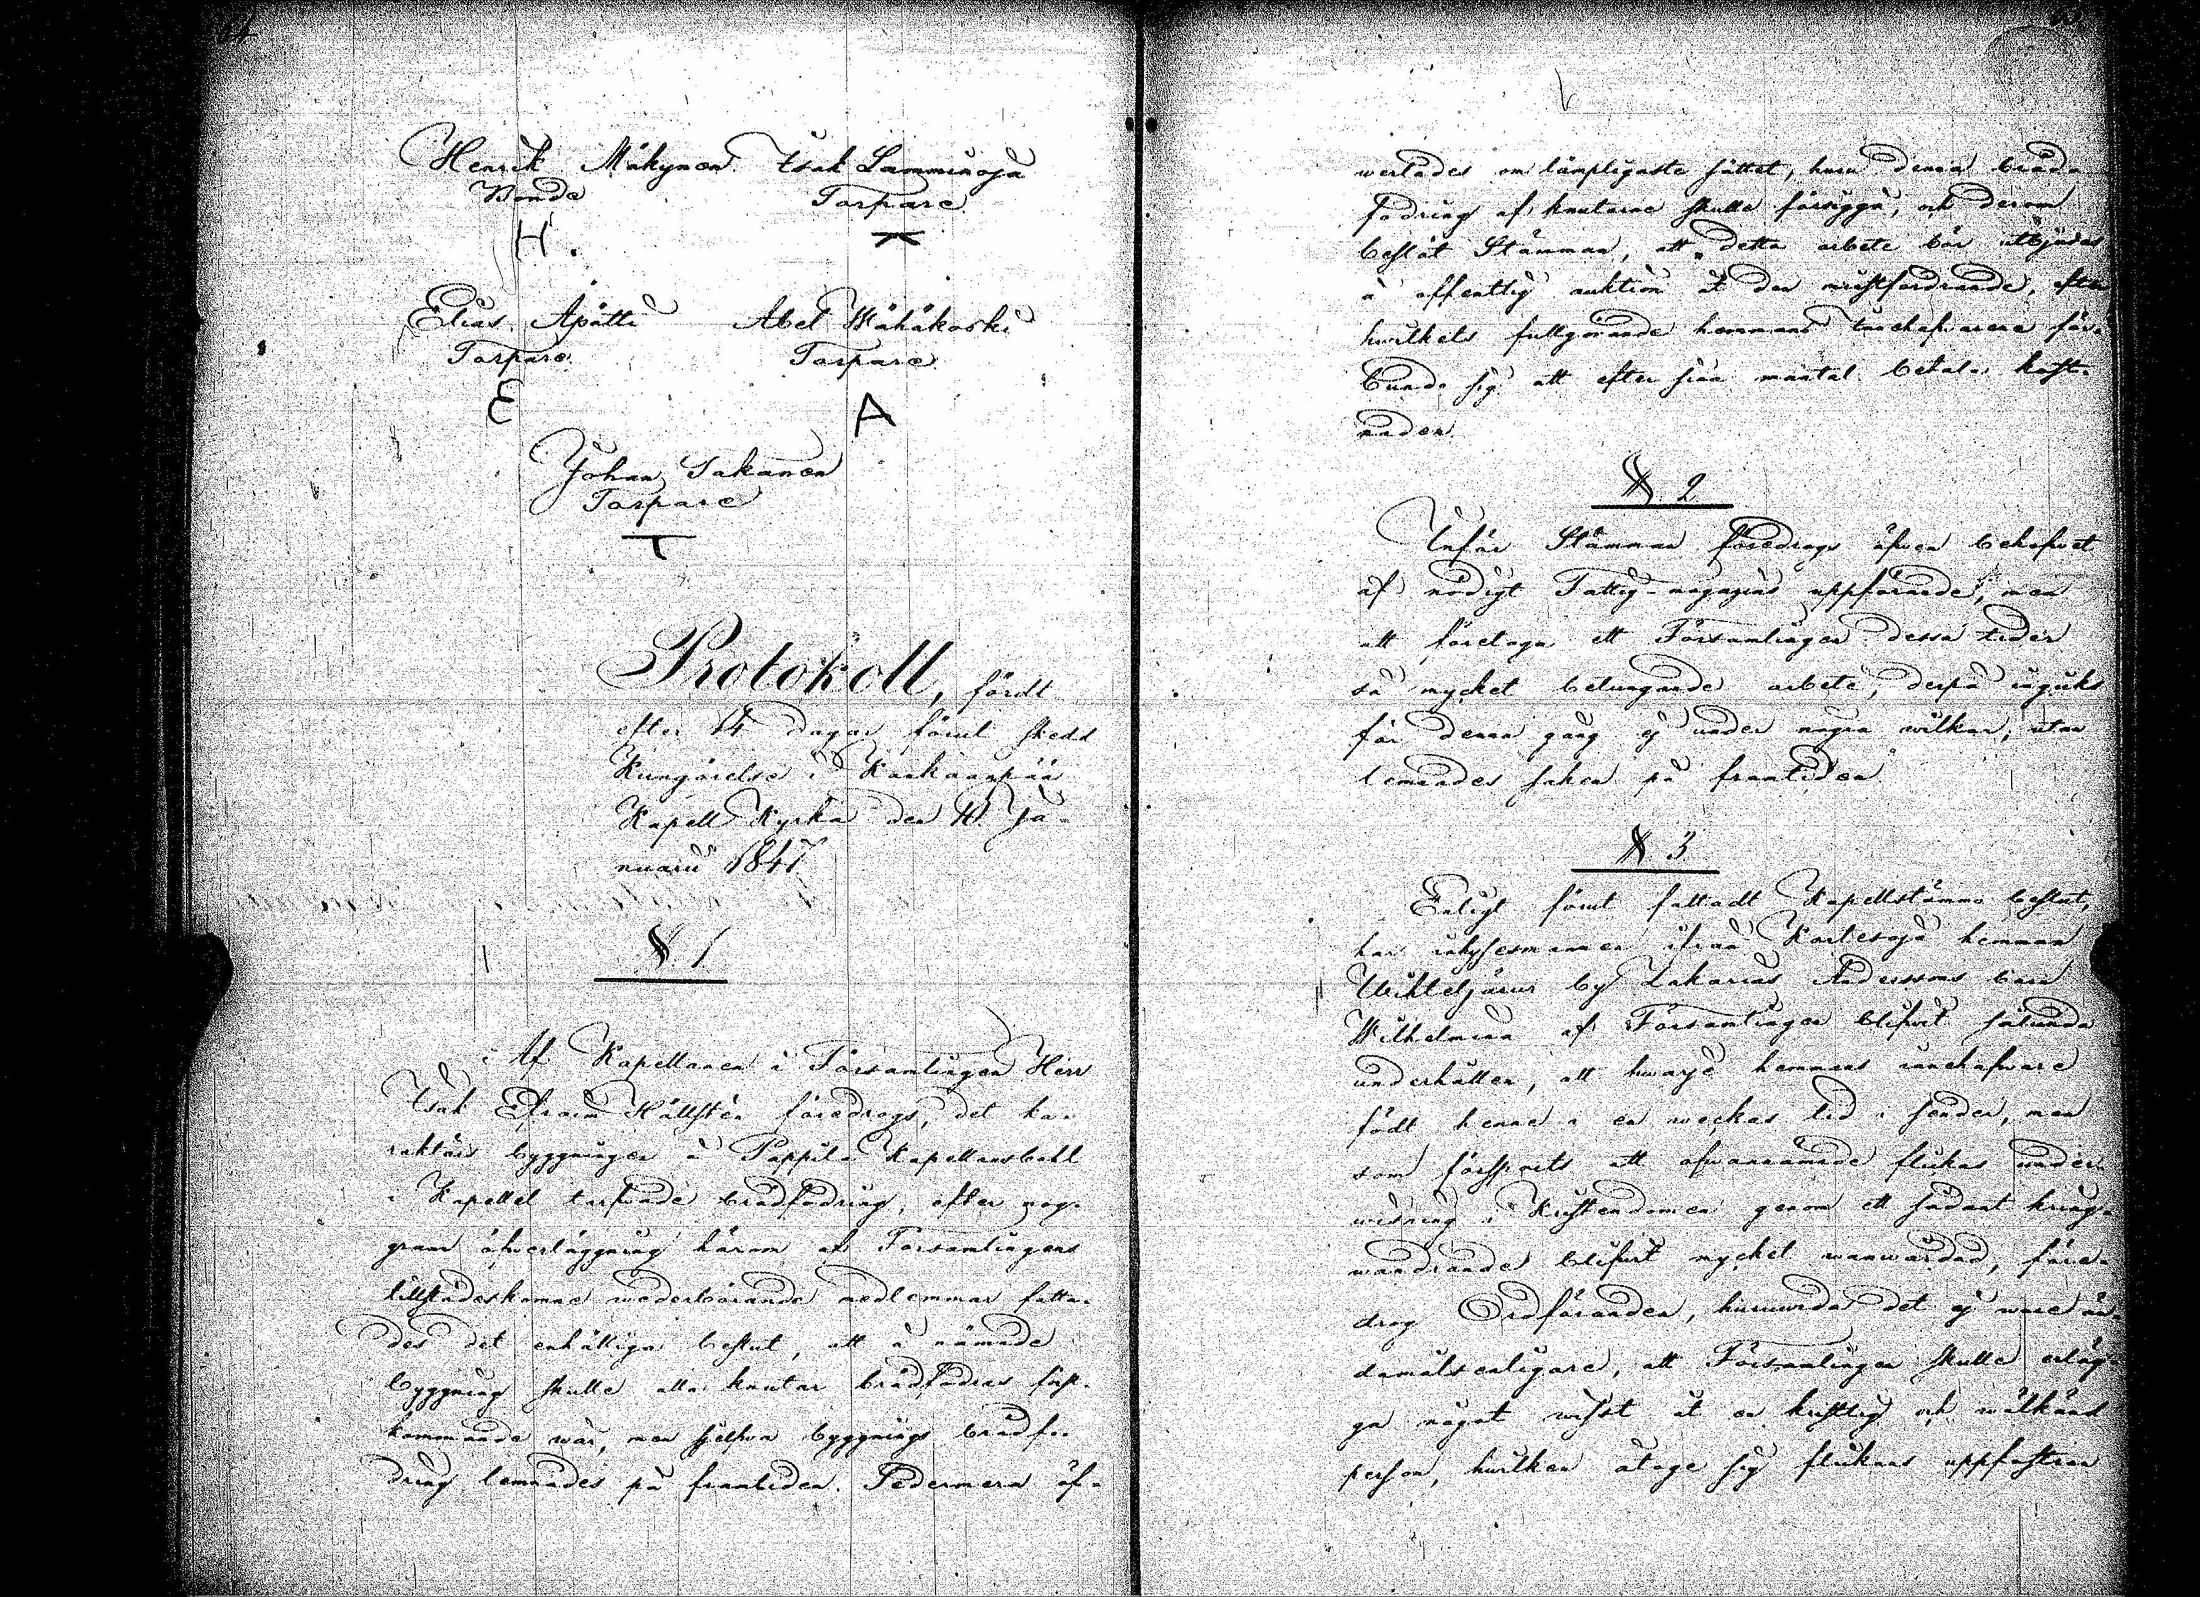 64
Henrik Mäkynen Isak Lamminoja
Bonde Torpare
H.
Elias Apätti Abel Wähäkoski
Torpare Torpare
E A
Johan Sakanen
Torpare
T
Protokoll, fördt
efter 14 dagar förut skedd
Kungörelse i Kankaanpää
Kapell Kyrka den 10 Ja-
nuarii 1847
§. 1
Af Kapellanen i Församlingen Herr
Isak Efraim Hällsten föredrogs, det ka-
raktärs byggningen å Pappila Kapellansbohl
i Kapellet tarfvade brädfodring, efter nog-
grann öfverläggning härom af Församlingens
tillstädeskomne wederbörande medlemmar fatta-
des det enhälliga beslut, att å nämnde
byggning skulle alla knutar brädfodras först-
kommande wår, men sjelfva byggnings brädfo-
dring lemnades på framtiden. Sedermera öf-
werlades om lämpligaste sättet, huru denna bräd-
fodring af knutarne skulle försiggå, och derom
beslöt Stämman, att detta arbete bör utbjudas
å offentlig auktion åt den minstfordrande, efter
hwilkets fullgörande hemmans innehafvarene för-
bundo sig att efter sina mantal betala kost-
naden.
§. 2
Inför Stämman föredrogs äfven behofvet
af nödigt Fattig-magazins uppförande, men
att företaga ett Församlingen dessa tider
så mycket betungande arbete, derpå ingicks
för denna gång ej under några wilkor, utan
lemnades saken på framtiden
§ 3
Enligt förut fattadt Kapellstämmo beslut,
har inhysesmannen ifrån Karlesoja hemman
Wihteljärvi by Zakarias Anderssons barn
Wilhelmina af Församlingen blifvit sålunda
underhållen, att hwarje hemmans innehafvare
födt henne i en weckas tid i sender, men
som försports att ofvannämnde flickas under-
wisning i Kristendomen genom ett sådant kring-
wandrande blifvit mycket wanwårdad, före-
drog Ordföranden, huruvida det ej wore än-
damålsenligare, att Församlingen skulle erläg-
ga något wisst åt en kristlig och wälkänd
person, hwilken åtoge sig flickans uppfostran